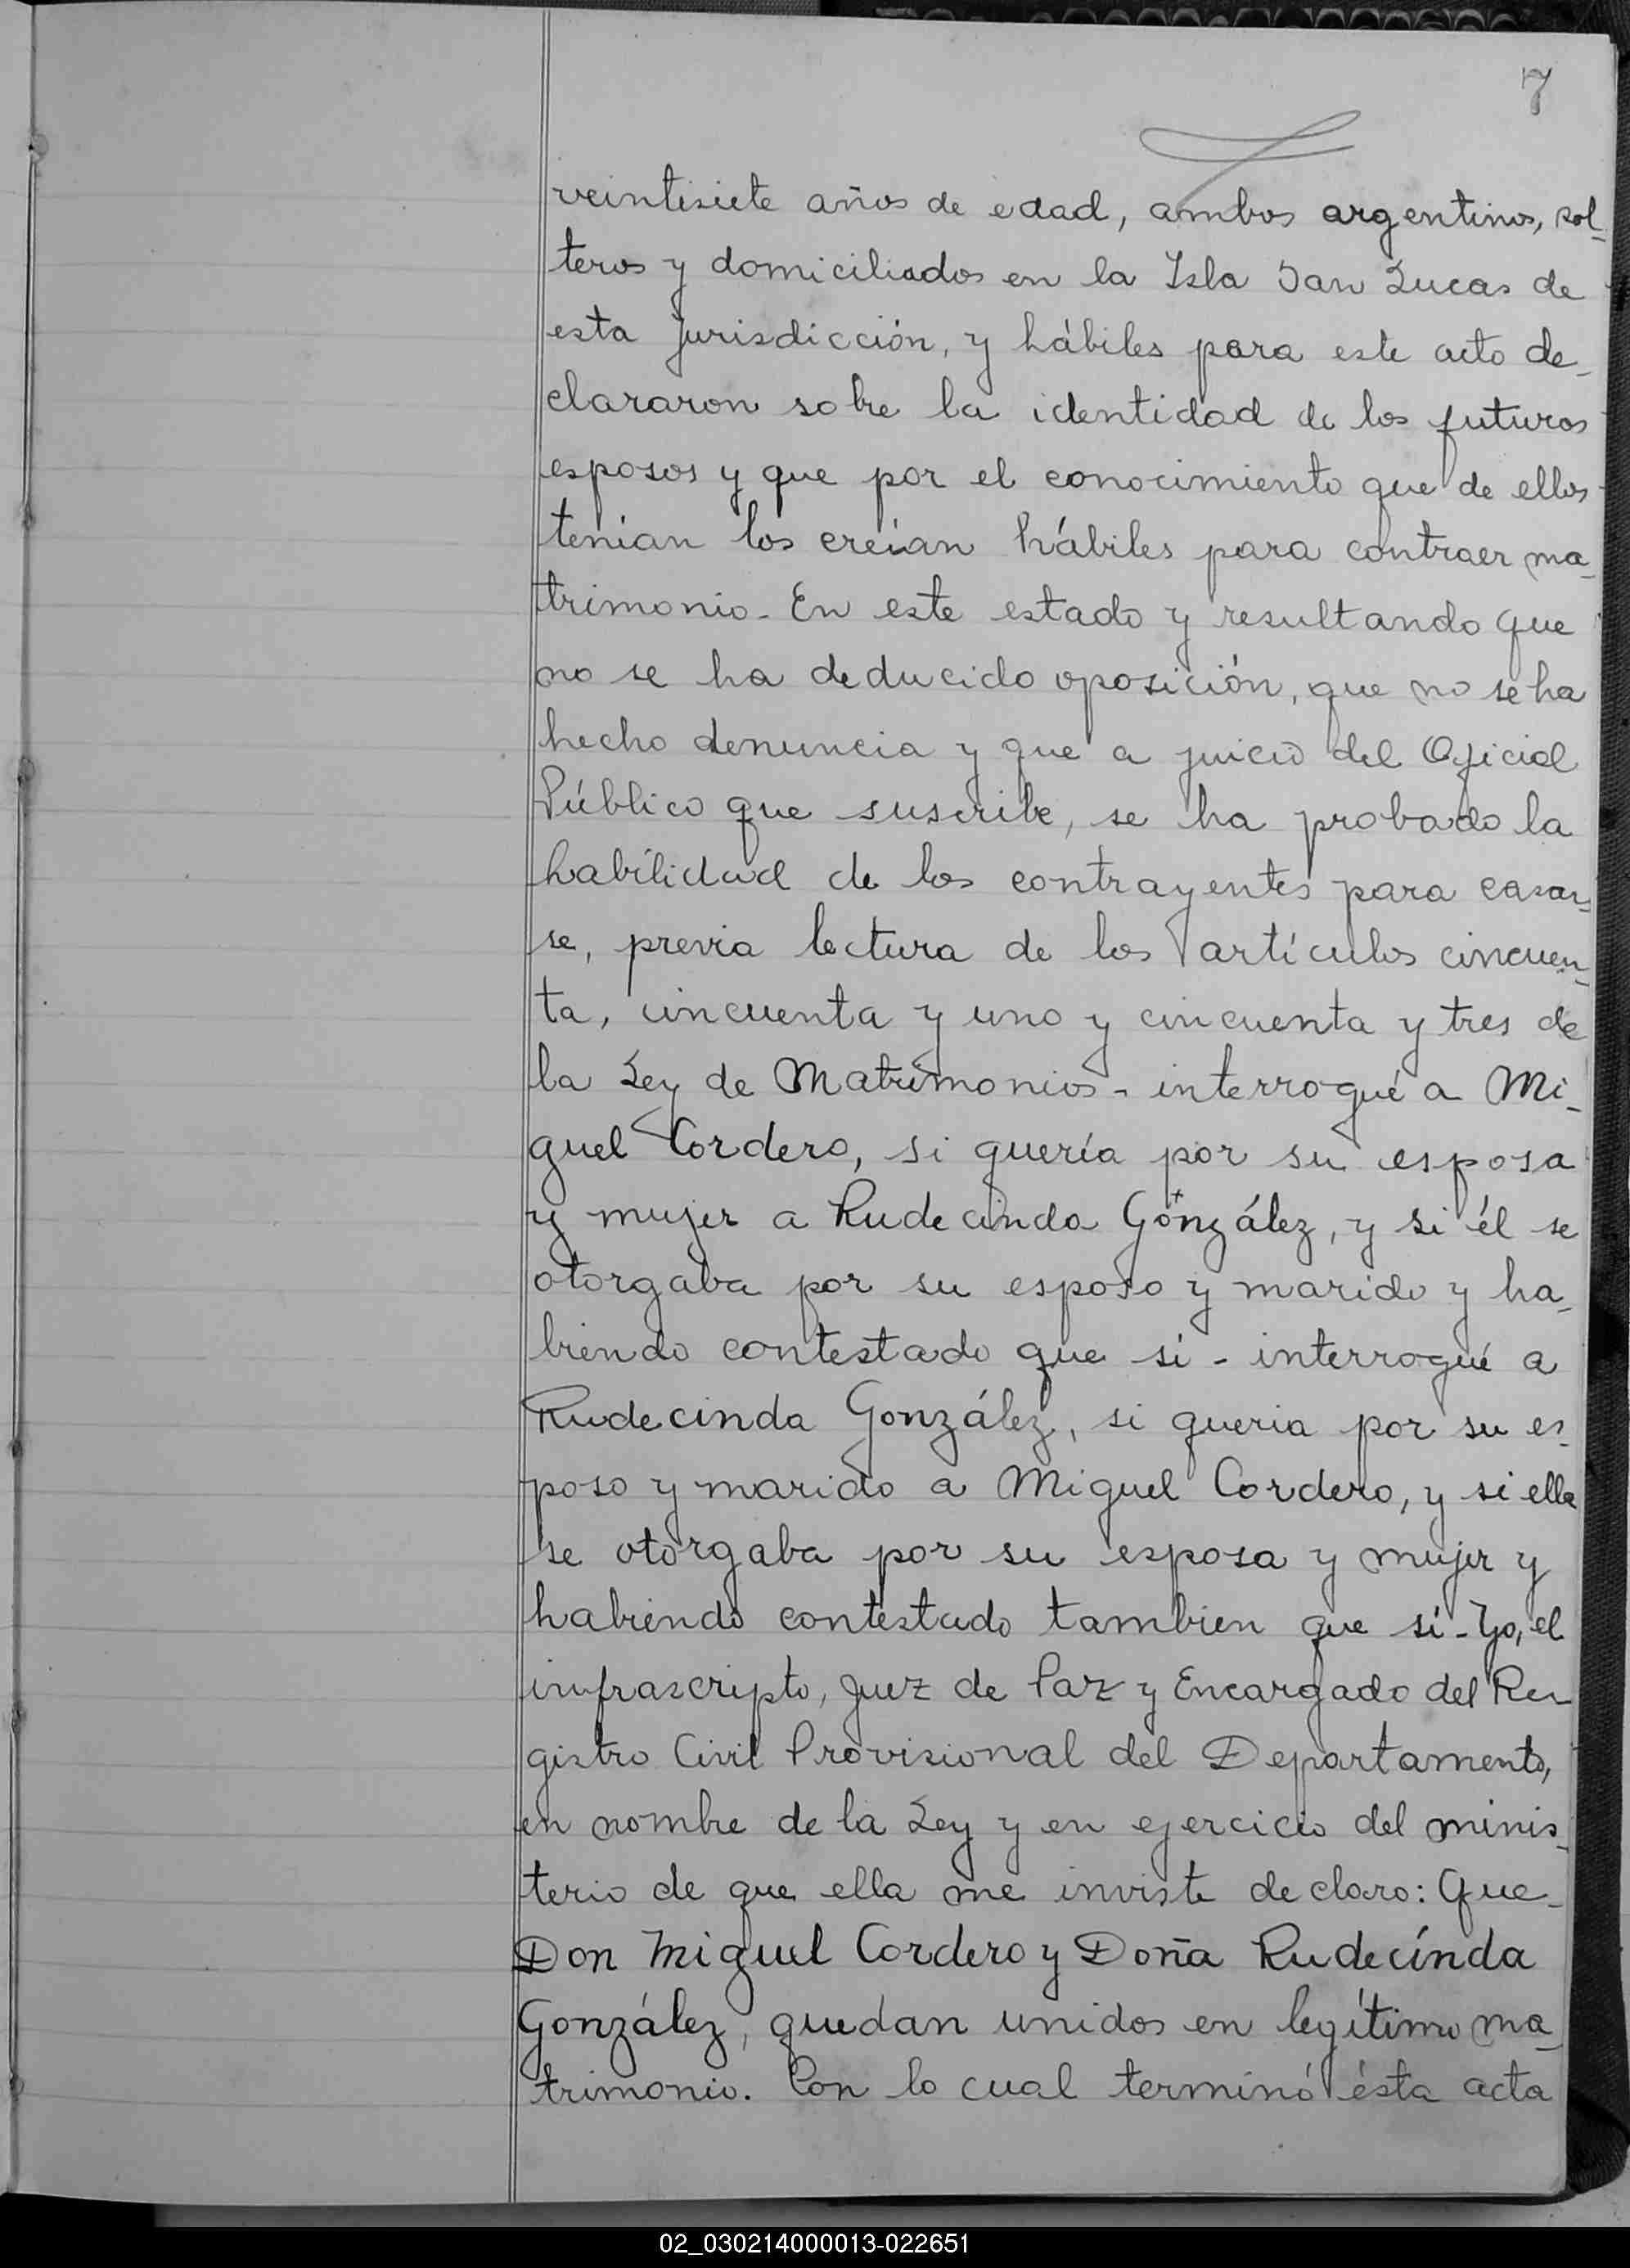 7
veintisiete años de edad, ambos argentinos, sol-
teros y domiciliados en la Isla San Lucas de
esta jurisdicción, y hábiles para este acto de-
clararon sobre la identidad de los futuros
esposos y que por el conocimiento que de ellos
tenian los creían hábiles para contraer ma-
trimonio- En este estado y resultando que
no se ha deducido oposición, que no se ha
hecho denuncia y que a juicio del Oficial
Público que suscribe, se ha probado la
habilidad de los contrayentes para casar-
se, previa lectura de los artículos cincuen-
ta, cincuenta y uno y cincuenta y tres de
la Ley de Matrimonios- interrogué a Mi-
guel Cordero, si quería por su esposa
y mujer a Rudecinda González, y si él se
otorgaba por su esposo y marido y ha-
biendo contestado que si - interrogué a
Rudecinda González, si queria por su es-
poso y marido a Miguel Cordero, y si ella
se otorgaba por su esposa y mujer y
habiendo contestado tambien que sí- Yo, el
infrascripto, Juez de Paz y Encargado del Re-
gistro Civil Provisional del Departamento,
en nombre de la Ley y en ejercicio del minis-
terio de que ella me inviste declaro: Que-
Don Miguel Cordero y Doña Rudecínda
González, quedan unidos en legítimo ma-
trimonio. Con lo cual terminó ésta acta
02_030214000013-022651